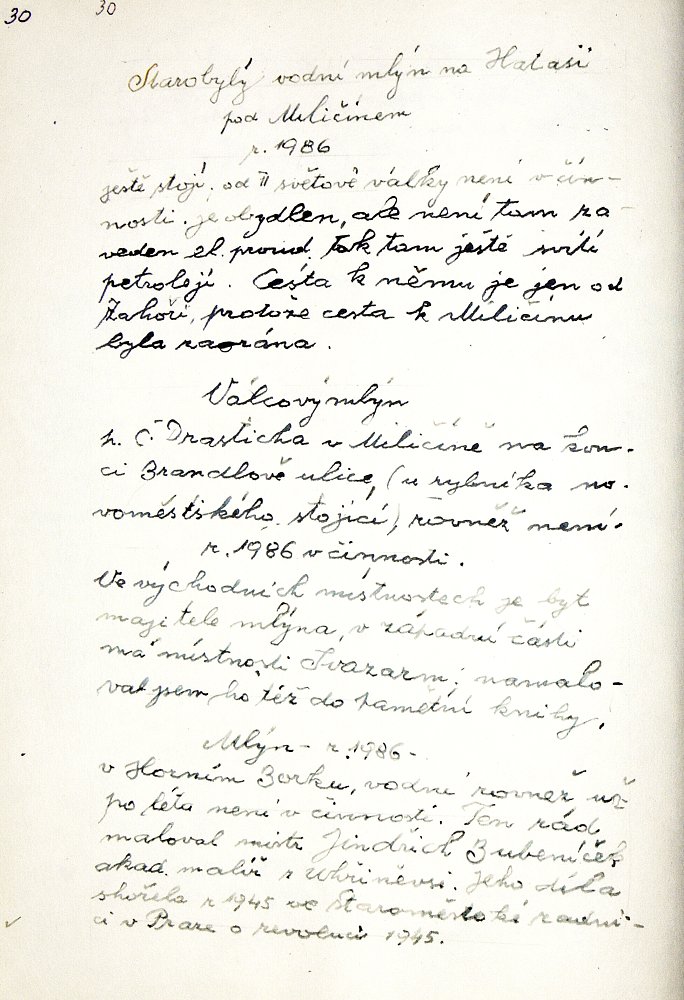 30 30
Starobylý vodní mlýn na Halaši
pod Miličínem
r. 1986
ještě stojí. od II světové války není v čin-
nosti. je obydlen, ale není tam za-
veden el. proud. Tak tam ještě svítí
petrolejí. Cesta k němu je jen od
Záhoří, protože cesta k Miličínu
byla zaorána.
Válcový mlýn
p. Č. Drasticha v Miličíně na kon-
ci Brandlově ulice, (u rybníka no-
voměstského stojící) rovněž není
r. 1986 v činnosti.
Ve východních místnostech je byt
majitele mlýna, v západní části
má místnosti Svazarm; namalo-
val jsem ho též do pamětní knihy.
Mlýn - r. 1986 -
v Horním Borku, vodní rovněž už
po léta není v činnosti. Ten rád
maloval mistr Jindřich Bubeníček
akad. malíř z Uhříněvsi. Jeho díla
shořela r 1945 ve Staroměstské radni-
ci v Praze o revoluci 1945.